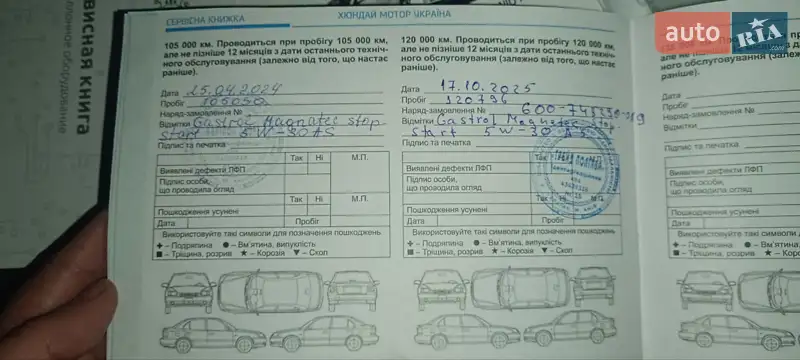 висная книга
люченое оборудование
СЕРВІСНА КНИЖКА
ХЮНДАЙ МОТОР УКРАЇНА
105 000 км. Проводиться при пробігу 105 000 км,
але не пізніше 12 місяців з дати останнього техніч-
ного обслуговування (залежно від того, що настає
раніше).
Дата 25.04.2024
Пробіг 105050
Наряд-замовлення №
Відмітки Castrol Magnatec stop-
start 5W-30 A5
Підпис та печатка
Так Ні М.П.
Виявлені дефекти ЛФП
Підпис особи,
що проводила огляд
Так Ні М.П.
Пошкодження усунені
Дата Пробіг
Використовуйте такі символи для позначення пошкоджень
+ – Подряпина ● – Вм'ятина, випуклість
■ – Тріщина, розрив ★ – Корозія ▼ – Скол
120 000 км. Проводиться при пробігу 120 000 км,
але не пізніше 12 місяців з дати останнього техніч-
ного обслуговування (залежно від того, що настає
раніше).
Дата 17.10.2025
Пробіг 120796
Наряд-замовлення №
Відмітки Castrol Magnatec stop-
start 5W-30 A5
Підпис та печатка
Так М.П.
Виявлені дефекти ЛФП
Підпис особи,
що проводила огляд
Так Ні М.П.
Пошкодження усунені
Дата Пробіг
Використовуйте такі символи для позначення пошкоджень
+ – Подряпина ● – Вм'ятина, випуклість
■ – Тріщина, розрив ★ – Корозія ▼ – Скол
але не пізніше 12
ного обслуговування (залеж
раніше).
Дата
Пробіг
Наряд-замовлення №
Відмітки
Підпис та печатка
Виявлені дефекти ЛФП
Підпис особи,
що проводила огляд
Пошкодження усунені
Дата
Використовуйте такі симво
+ – Подряпина ● – Вм'ят
■ – Тріщина, розрив ★ –
auto RIA.com